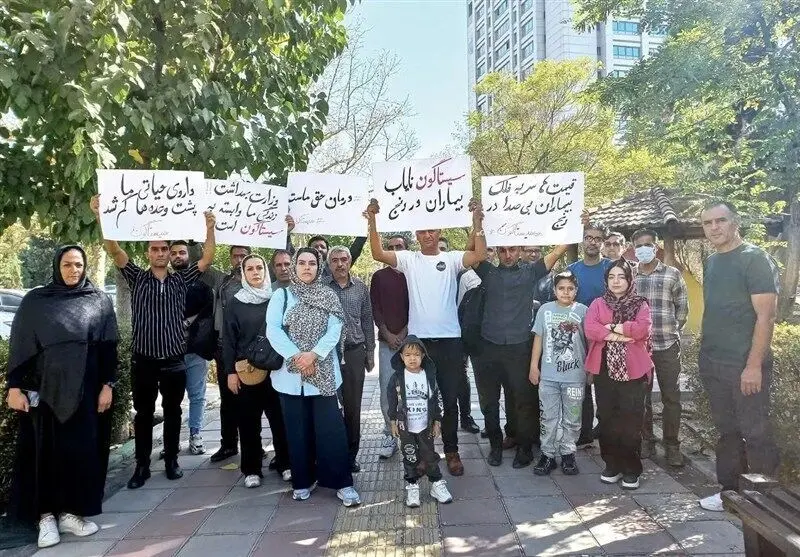 قیمت ها سر به فلک
بیماران بی صدا در
رنج
سیستاگون نایاب
بیماران در رنج
درمان حق ماست
وزارت بهداشت!!
زندگی ما وابسته به
سیستاگون است
داروی حیاتی ما
پشت وعده ها گم شد
Black